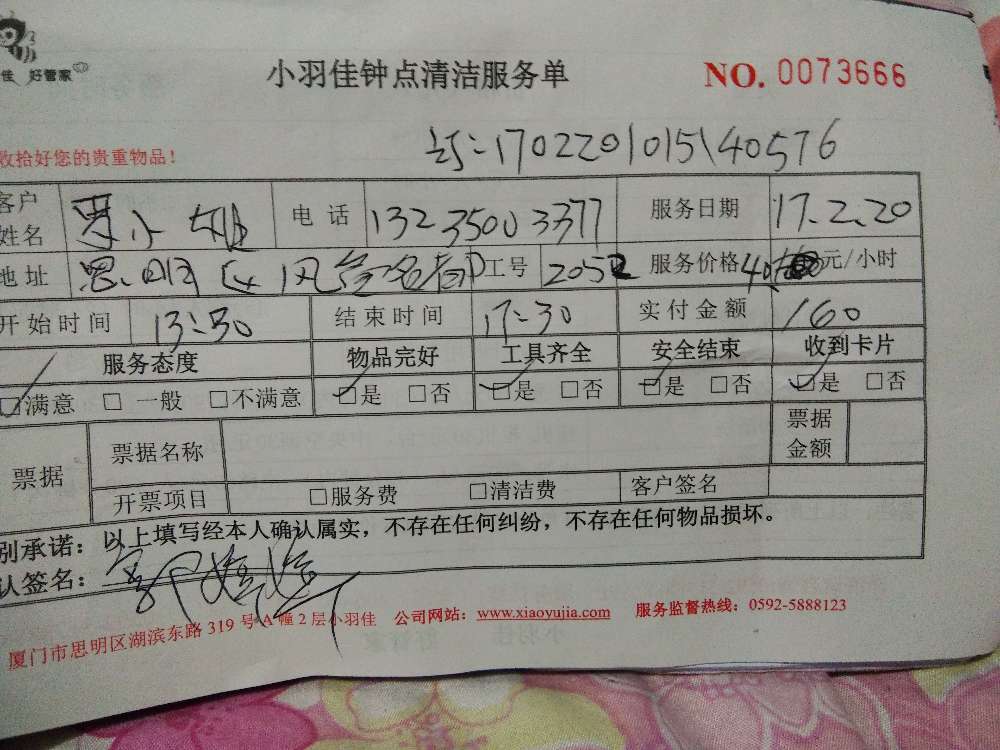 佳 好管家
小羽佳钟点清洁服务单 NO. 0073666
收拾好您的贵重物品!
订:1702201015140576
客户姓名 小姐 电话 13235003377 服务日期 17.2.20
地址 思明区 工号 2052 服务价格 40 元/小时
开始时间 13:30 结束时间 17:30 实付金额 160
服务态度 物品完好 工具齐全 安全结束 收到卡片
☑满意 □一般 □不满意 ☑是 □否 ☑是 □否 ☑是 □否 ☑是 □否
票据 票据名称 票据金额
开票项目 □服务费 □清洁费 客户签名
别承诺:以上填写经本人确认属实,不存在任何纠纷,不存在任何物品损坏。
认签名:
厦门市思明区湖滨东路 319 号 A 幢 2 层小羽佳 公司网站:www.xiaoyujia.com 服务监督热线:0592-5888123